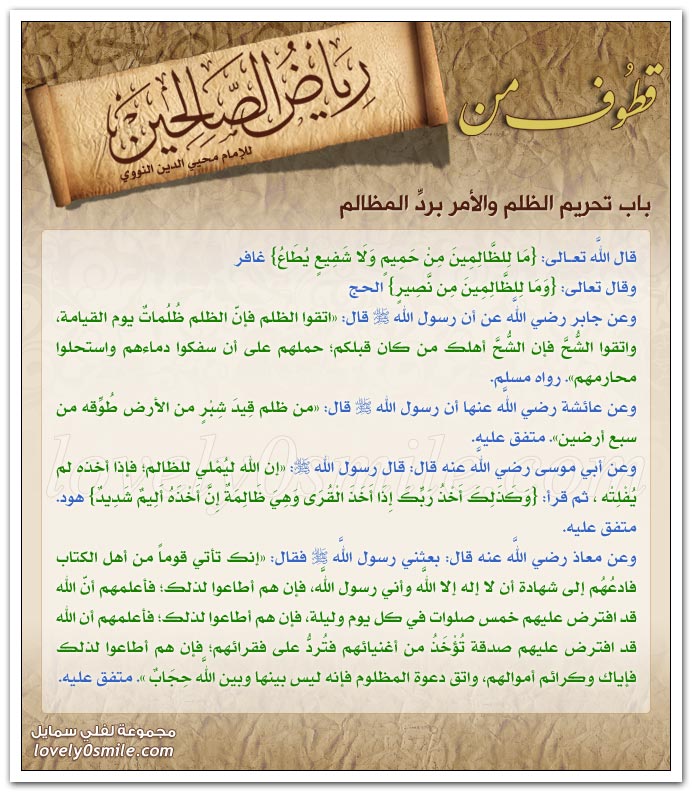 قطوف من
رياض الصالحين
للإمام محيي الدين النووي
باب تحريم الظلم والأمر بردِّ المظالم
قال اللَّه تعـالى: {مَا لِلظَّالِمِينَ مِنْ حَمِيمٍ وَلَا شَفِيعٍ يُطَاعُ} غافر
وقال تعالى: {وَمَا لِلظَّالِمِينَ مِن نَّصِيرٍ} الحج
وعن جابر رضي اللَّه عن أن رسول اللَّه ﷺ قال: «اتقوا الظلم فإنّ الظلم ظُلُماتٌ يوم القيامة،
واتقوا الشُّحَّ فإن الشُّحَّ أهلك من كان قبلكم؛ حملهم على أن سفكوا دماءهم واستحلوا
محارمهم». رواه مسلم.
وعن عائشة رضي اللَّه عنها أن رسول اللَّه ﷺ قال: «من ظلم قِيدَ شِبْرٍ من الأرض طُوِّقه من
سبع أرضين». متفق عليه.
وعن أبي موسى رضي اللَّه عنه قال: قال رسول اللَّه ﷺ: «إن اللَّه ليُمْلي للظالم؛ فإذا أخذه لم
يُفْلِته ، ثم قرأ: {وَكَذَلِكَ أَخْذُ رَبِّكَ إِذَا أَخَذَ الْقُرَى وَهِيَ ظَالِمَةٌ إِنَّ أَخْذَهُ أَلِيمٌ شَدِيدٌ} هود.
متفق عليه.
وعن معاذ رضي اللَّه عنه قال: بعثني رسول اللَّه ﷺ فقال: «إنك تأتي قوماً من أهل الكتاب
فادعُهُم إلى شهادة أن لا إله إلا اللَّه وأني رسول اللَّه، فإن هم أطاعوا لذلك؛ فأعلمهم أنّ اللَّه
قد افترض عليهم خمس صلوات في كل يوم وليلة، فإن هم أطاعوا لذلك؛ فأعلمهم أن اللَّه
قد افترض عليهم صدقة تُؤْخَذُ من أغنيائهم فتُردُّ على فقرائهم؛ فإن هم أطاعوا لذلك
فإياك وكرائم أموالهم، واتق دعوة المظلوم فإنه ليس بينها وبين اللَّه حِجَابٌ ». متفق عليه.
lovely0smile.com
مجموعة لفلي سمايل
lovely0smile.com